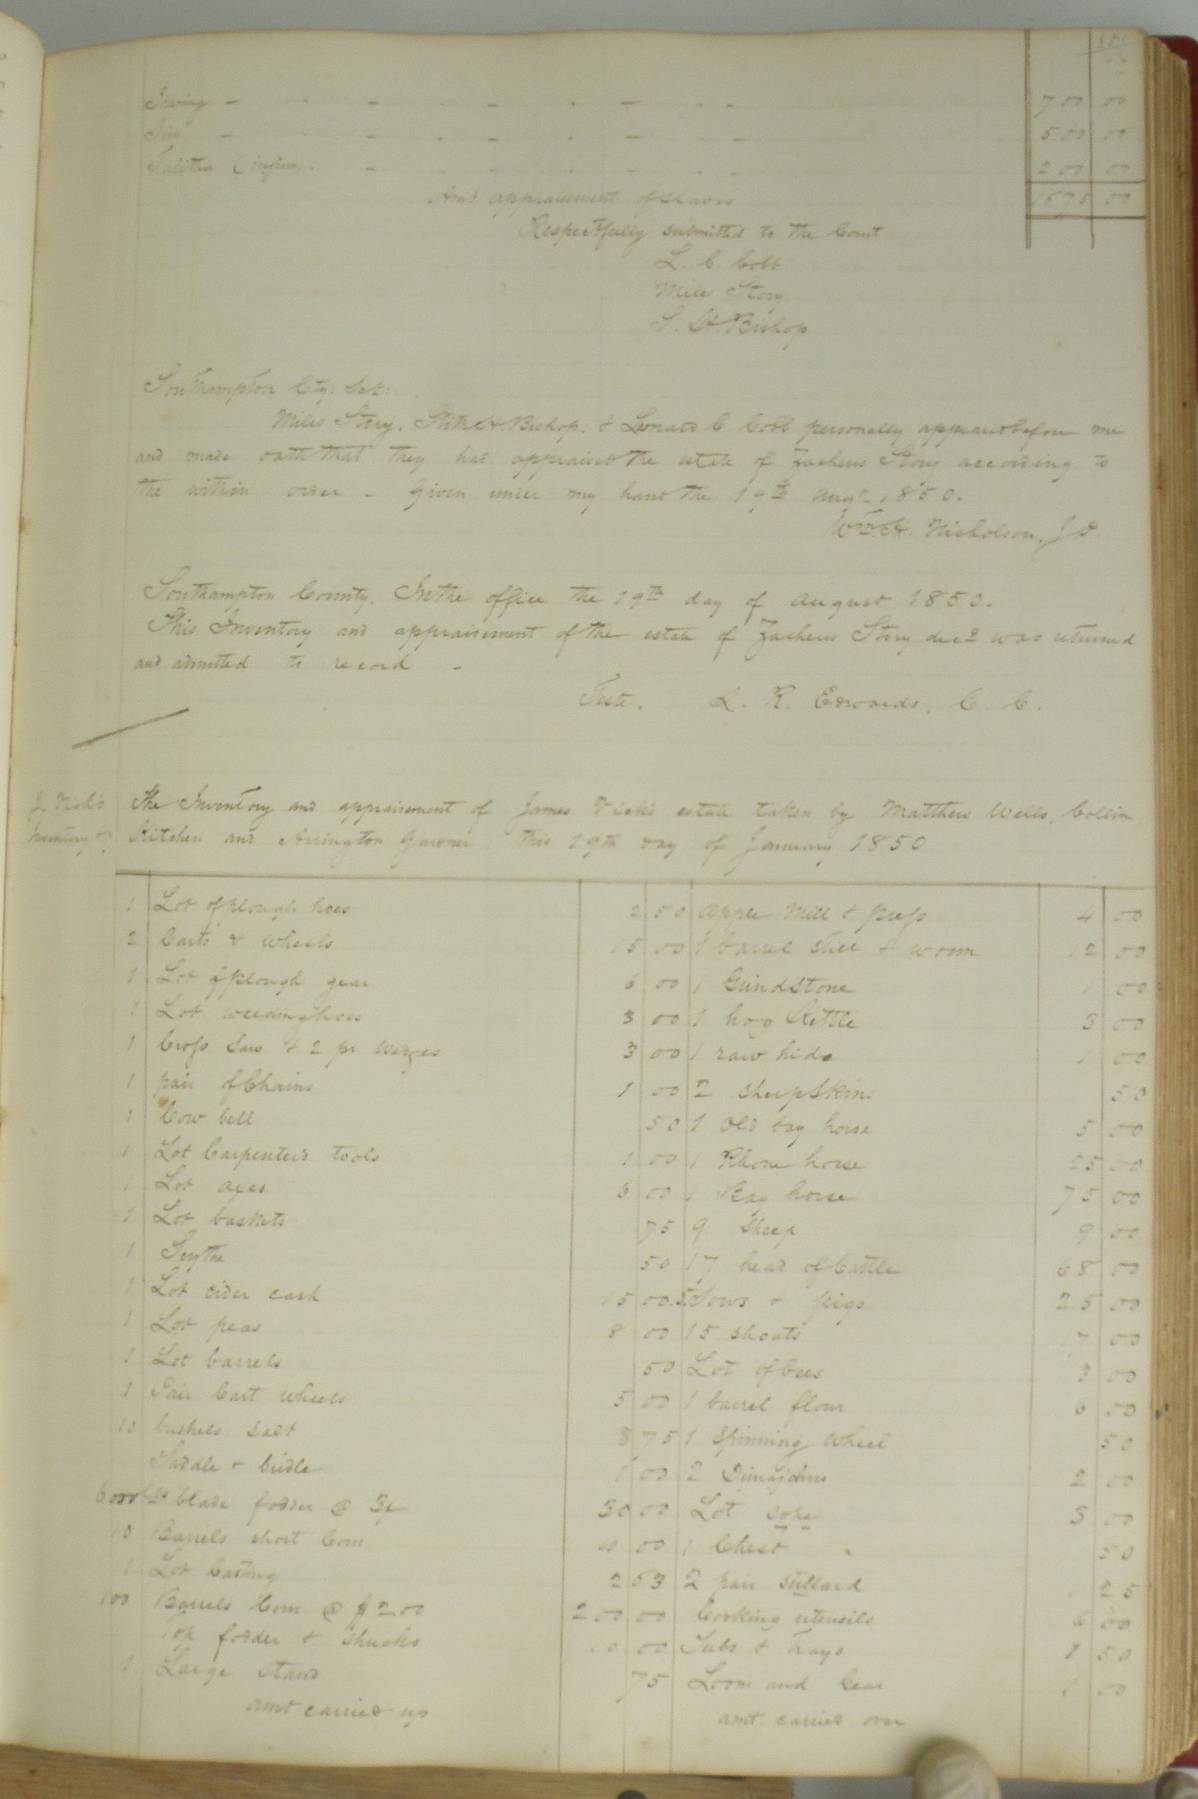 Irving - - - - - 700 00
Jim - - - - - 500 00
Talitha (infirm) - - - - 200 00
Amt appraisement of slaves 1675 00
Respectfully submitted to the Court
L. C. Cobb
Miles Story
S. H. Bishop
Southampton Cty. Sct:
Miles Story, Stith H Bishop, & Leonard C. Cobb personally appeared before me
and made oath that they had appraised the estate of Zacheus Story according to
the within order - Given under my hand the 19th Augt. 1850.
Wm. H. Nicholson, J P.
Southampton County. In the office the 19th day of August 1850.
This Inventory and appraisement of the estate of Zacheus Story decd was returned
and admitted to record -
Teste, L. R. Edwards, C. C.
J. Vick's
Inventory &c
The Inventory and appraisement of James Vicks estate taken by Matthew Wells, Collin
Kitchen and Arrington Gardner this 19th day of January 1850
1 Lot of plough hoes 2 50 Apple Mill & Press 4 00
2 Carts & wheels 15 00 1 barrel still & worm 12 00
1 Lot of plough gear 6 00 1 Grindstone 1 00
1 Lot weeding hoes 3 00 1 hog Kettle 3 00
1 Cross Saw & 2 pr wedges 3 00 1 raw hide 1 00
1 pair of Chains 1 00 2 sheep Skins 50
1 Cow bell 50 1 Old bay horse 5 00
1 Lot Carpenters tools 1 00 1 Rhone horse 25 00
1 Lot axes 6 00 1 Bay horse 75 00
1 Lot baskets 75 9 Sheep 9 00
1 Scythe 50 17 head of Cattle 68 00
1 Lot cider cask 15 00 5 Sows & pigs 25 00
1 Lot peas 8 00 15 shoats 17 00
1 Lot barrels 50 Lot of bees 3 00
1 Pair Cart wheels 5 00 1 barrel flour 6 00
10 bushels salt 8 75 1 Spinning Wheel 50
Saddle & bridle 1 00 2 Dimajohns 2 00
blade fodder @ 30 00 Lot sope 3 00
10 Barrels short Corn 00 1 Chest 50
1 Lot 2 53 2 pair stillard 1 25
100 Barrels Corn @ $2.00 200 00 Cooking utensils 6 00
Top fodder & shucks 00 Tubs & Trays 1 50
1 Large stand 75 Loom and Gear 00
amt carried up amt. carried over